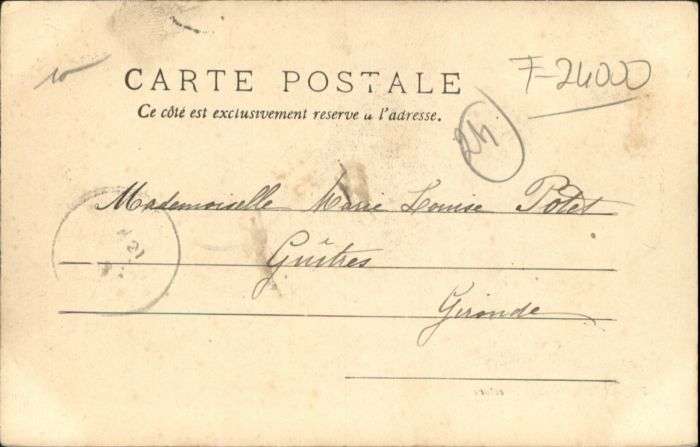 F-24000
CARTE POSTALE
Ce côté est exclusivement reserve a l'adresse.
24
Mademoiselle Marie Louise Potet
Guîtres
Gironde